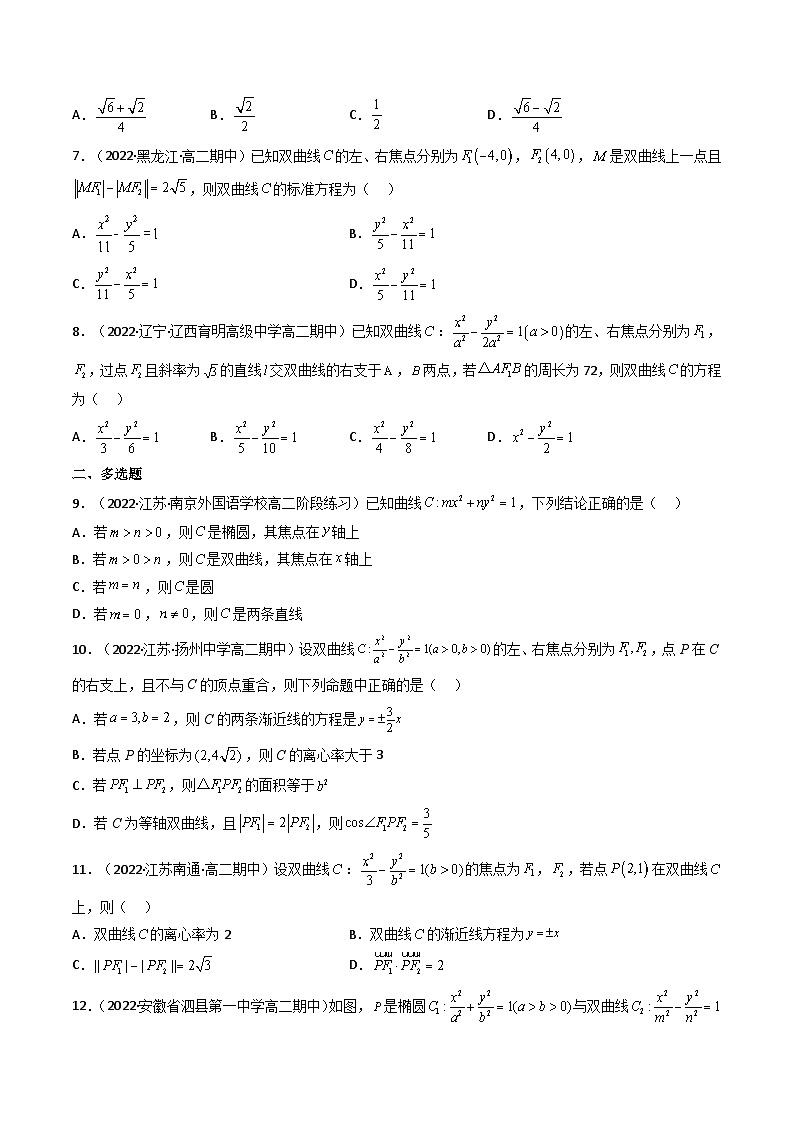 A．(√6+√2)/4 B．√2/2 C．1/2 D．(√6−√2)/4
7．（2022·黑龙江·高二期中）已知双曲线C的左、右焦点分别为F₁(−4,0)，F₂(4,0)，M是双曲线上一点且
||MF₁|−|MF₂||=2√5，则双曲线C的标准方程为（　）
A．x²/11−y²/5=1 B．y²/5−x²/11=1
C．y²/11−x²/5=1 D．x²/5−y²/11=1
8．（2022·辽宁·辽西育明高级中学高二期中）已知双曲线C：x²/a²−y²/2a²=1(a>0)的左、右焦点分别为F₁，
F₂，过点F₂且斜率为的直线l交双曲线的右支于A，B两点，若△AF₁B的周长为72，则双曲线C的方程
为（　）
A．x²/3−y²/6=1 B．x²/5−y²/10=1 C．x²/4−y²/8=1 D．x²−y²/2=1
二、多选题
9．（2022·江苏·南京外国语学校高二阶段练习）已知曲线C:mx²+ny²=1，下列结论正确的是（　）
A．若m>n>0，则C是椭圆，其焦点在y轴上
B．若m>0>n，则C是双曲线，其焦点在x轴上
C．若m=n，则C是圆
D．若m=0，n≠0，则C是两条直线
10．（2022·江苏·扬州中学高二期中）设双曲线C:x²/a²−y²/b²=1(a>0,b>0)的左、右焦点分别为F₁,F₂，点P在C
的右支上，且不与C的顶点重合，则下列命题中正确的是（　）
A．若a=3,b=2，则C的两条渐近线的方程是y=±3/2x
B．若点P的坐标为(2,4√2)，则C的离心率大于3
C．若PF₁⊥PF₂，则△F₁PF₂的面积等于b²
D．若C为等轴双曲线，且|PF₁|=2|PF₂|，则cos∠F₁PF₂=3/5
11．（2022·江苏南通·高二期中）设双曲线C：x²/3−y²/b²=1(b>0)的焦点为F₁，F₂，若点P(2,1)在双曲线C
上，则（　）
A．双曲线C的离心率为2 B．双曲线C的渐近线方程为y=±x
C．||PF₁|−|PF₂||=2√3 D．PF₁·PF₂=2
12．（2022·安徽省泗县第一中学高二期中）如图，P是椭圆C₁:x²/a²+y²/b²=1(a>b>0)与双曲线C₂:x²/m²−y²/n²=1